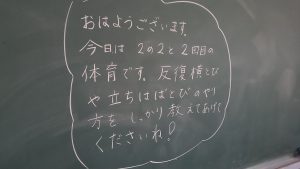 おはようございます。
今日は 2の2と 2回目の
体育です。反復横とび
や立ちはばとびのやり
方を しっかり教えてあげて
くださいね!